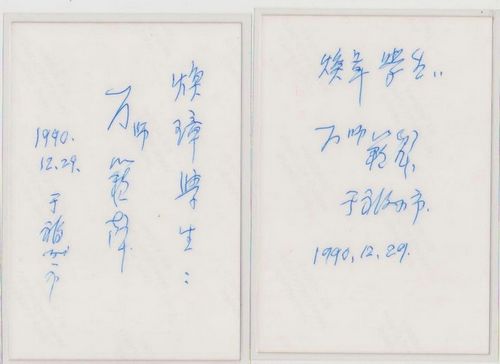 焕璋學生:
万师
1990.
12.29.
于福州市
焕章學生:
万师
于福州市.
1990.12.29.